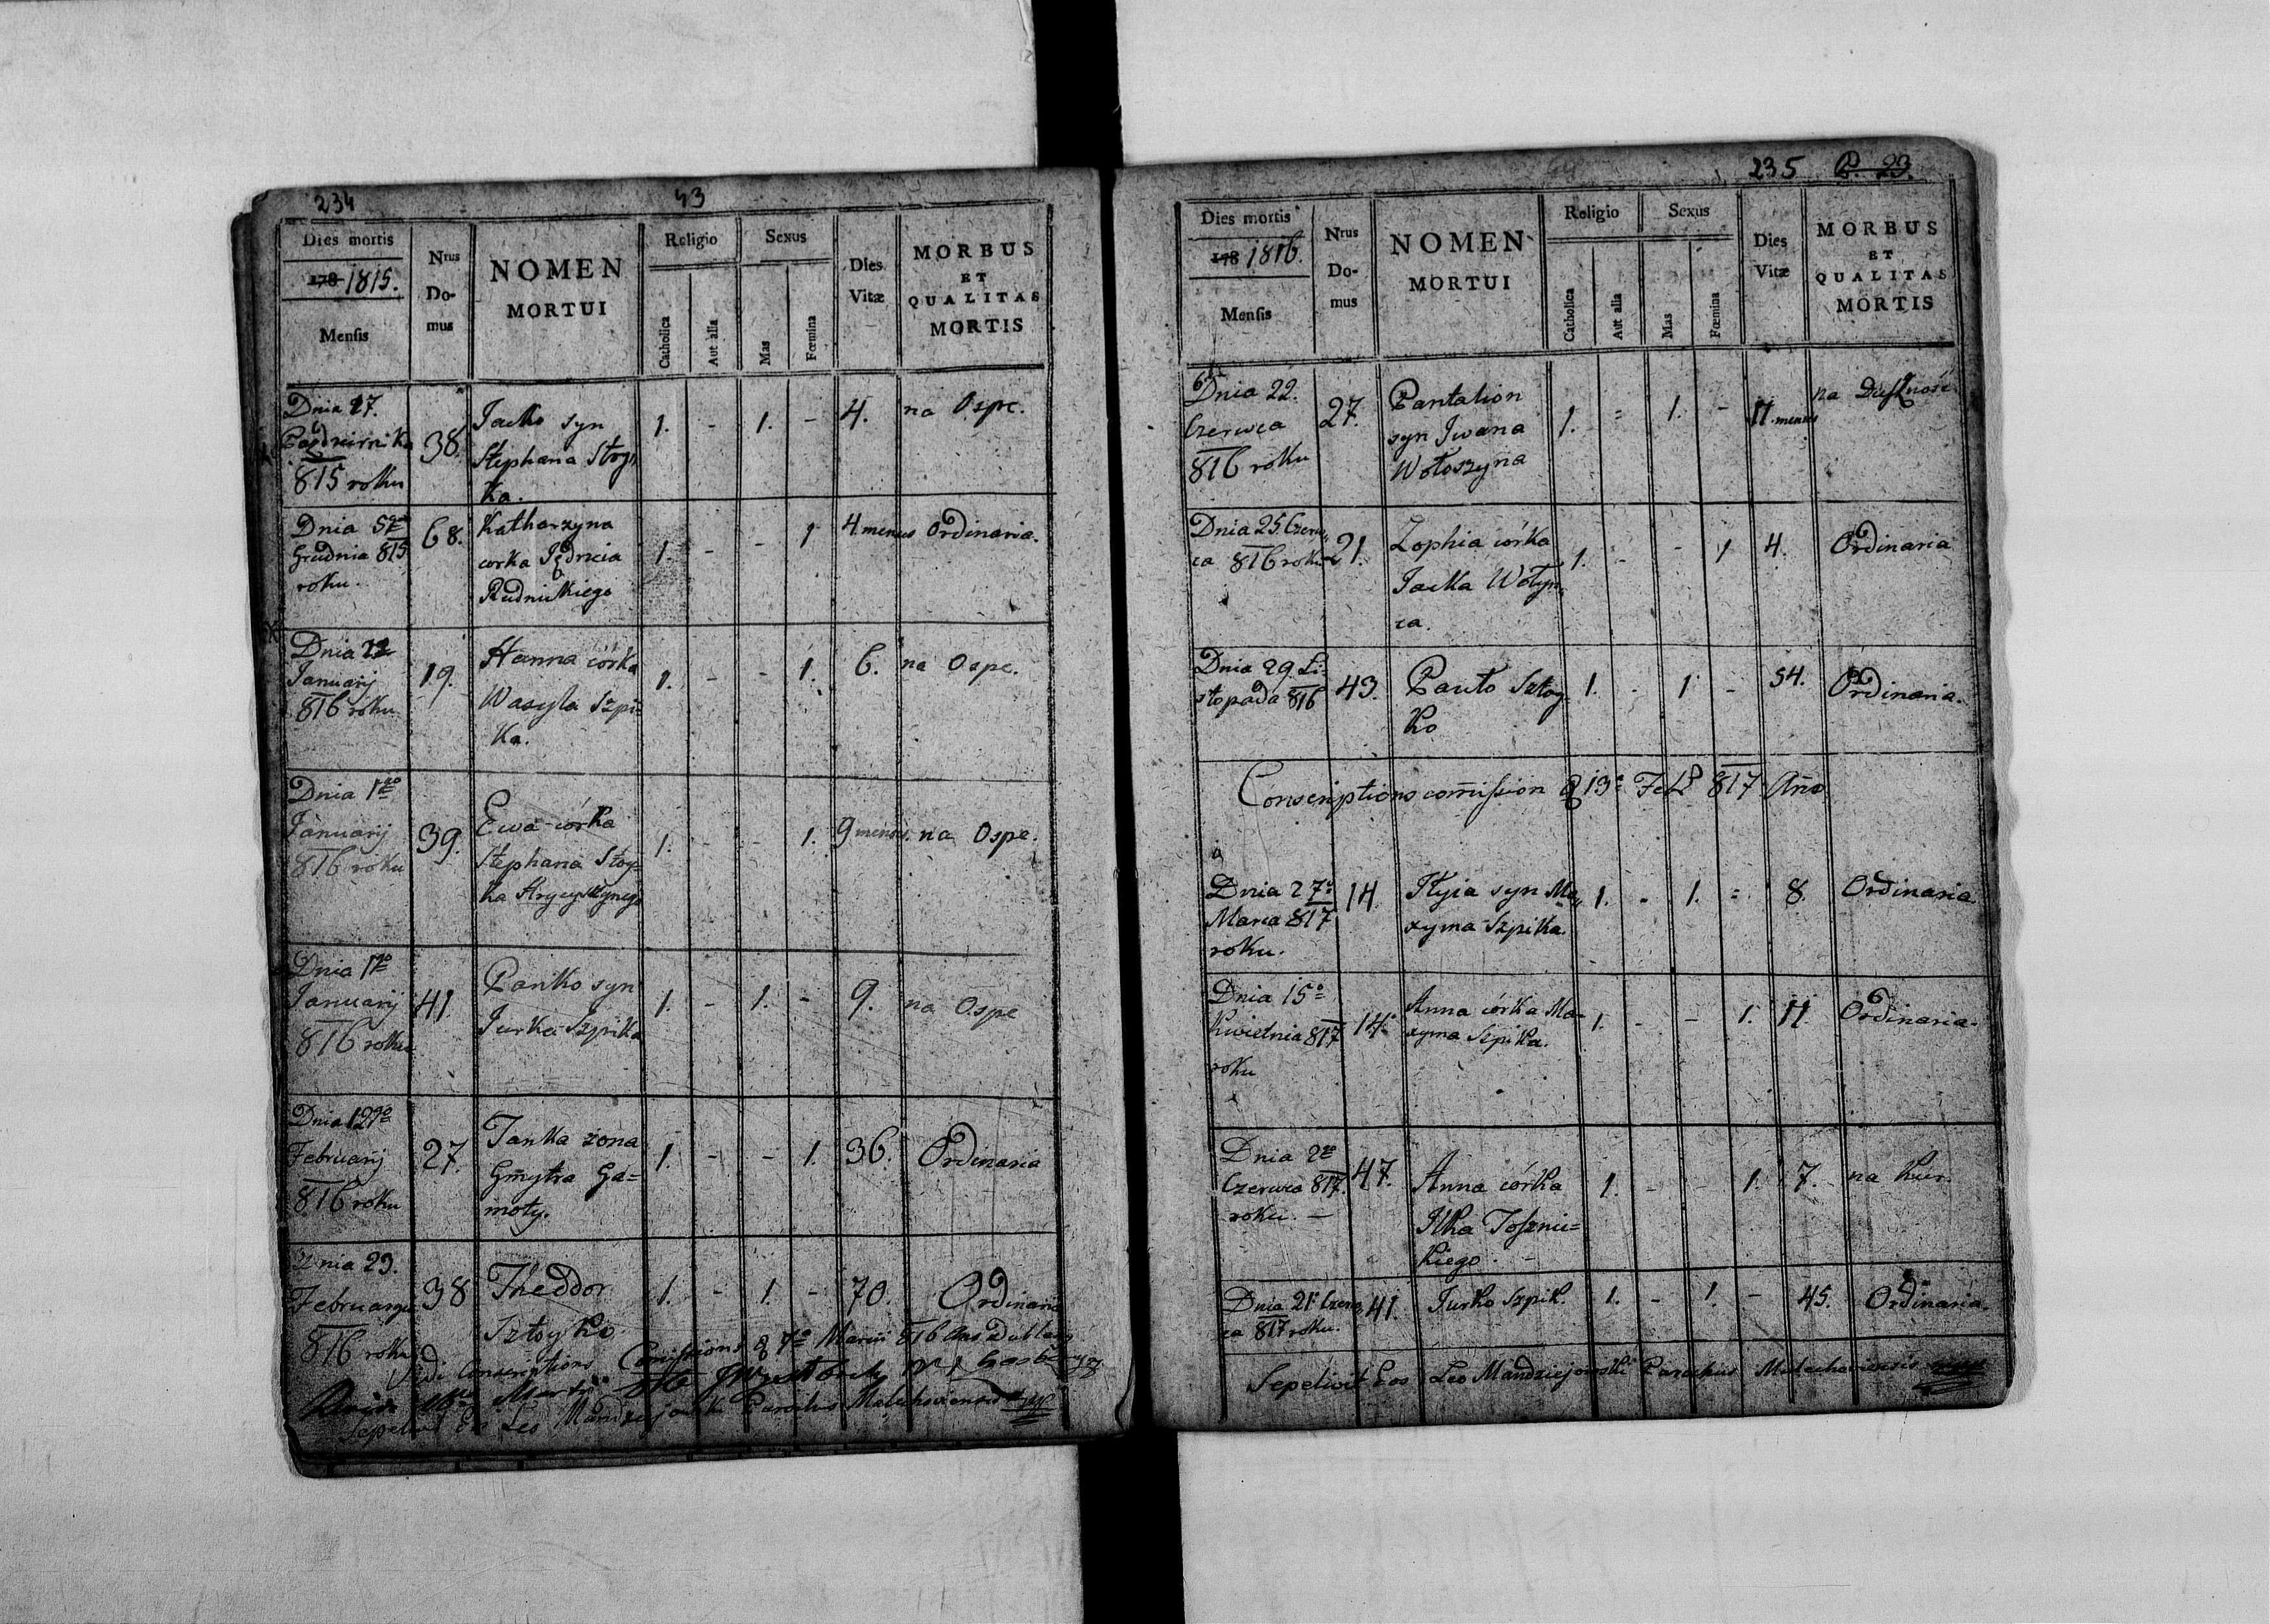 234
43
Dies mortis
178 1815.
Mensis
Nrus Do-mus
NOMEN
MORTUI
Religio
Catholica
Aut alia
Sexus
Mas
Fœmina
Dies Vitæ
MORBUS
ET
QUALITAS
MORTIS
Dnia 27.
815 roku
38.
Jacko syn
Stephana Stoy
ka.
1. - 1. - 4. na Ospe.
Dnia 5go
Grudnia 815
roku.
68.
Katharzyna
corka Jędrzeia
Rudnickiego
1. - - 1 4. menses Ordinaria.
Dnia
Januarij
816 roku
19.
Hanna córka
Wasyla Szpi-
ka.
1. - - 1. 6. na Ospe.
Dnia 1go
Januarij
816 roku
39.
Ewa córka
Stephana Stoy-
ka
1. - - 1. 9 menses. na Ospe.
Dnia 17go
Januarij
816 roku
41.
Panko syn
Jurka Szpika
1. - 1. - 9. na Ospe
Dnia 12go
Februarij
816 roku
27.
Janka zona
Gmytra Ga=
moty.
1. - - 1. 36. Ordinaria
Dnia 29.
816 roku
38
Theodor
Sztoyko
1. - 1. - 70. Ordinaria
Vidi Conscriptions
Sepelivit Eos Leo Mandziejowski Parochus Malechoviensis
235 P. 23.
Dies mortis
178 1816.
Mensis
Nrus Do-mus
NOMEN
MORTUI
Religio
Catholica
Aut alia
Sexus
Mas
Fœmina
Dies Vitæ
MORBUS
ET
QUALITAS
MORTIS
Dnia 22.
Czerwca
816 roku
27.
Pantalion
syn Iwana
Wołoszyna
1. = 1. - 11. menses na Duszność
Dnia 25. Czerw,,
ca 816 roku
21.
Zophia córka
Jacka Wołyn,,
ca.
1. - - 1 4. Ordinaria
Dnia 29. Li-
stopada 816
43.
Pawło Sztoy
ko
1. - 1 - 54. Ordinaria.
Conscriptions 817
Dnia 27o
Marca 817
roku.
14.
Ilyia syn Ma,,
xyma Szpika.
1. - 1. = 8. Ordinaria.
Dnia 15o
Kwietnia 817
roku
14.
Anna córka Ma-
xyma Szpika.
1. - - 1. 11 Ordinaria.
Dnia 2go
Czerwca 817.
roku. -
47.
Anna córka
Ilka
kiego. -
1. - - 1. 7. na kur.
Dnia 21o Czerw,,
ca 817 roku.
41.
Jurko Szpik.
1. - 1. - 45. Ordinaria.
Sepelivit Eos Leo Mandziejowski Parochus Malechoviensis